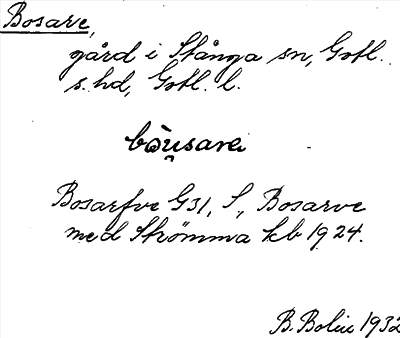 Bosarve,
gård i Stånga sn, Gotl.
s. hd, Gotl. l.
bòu̯sarvɛ
Bosarfve G31, S, Bosarve
med Strömma kb 1924.
B. Bolin 1932